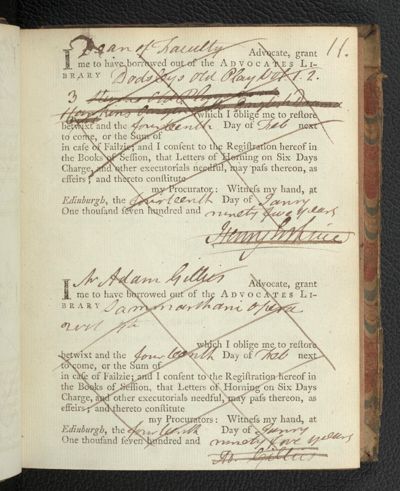 11.
I Dean of Faculty Advocate, grant
me to have borrowed out of the ADVOCATES LI-
BRARY Dodsleys old Plays Vol 1. 2.
3
Hawkins English Drama
which I oblige me to restore
betwixt and the fourteenth Day of Feb next
to come, or the Sum of
in case of Failzie; and I consent to the Registration hereof in
the Books of Session, that Letters of Horning on Six Days
Charge, and other executorials needful, may pass thereon, as
effeirs; and thereto constitute
my Procurator: Witness my hand, at
Edinburgh, the fourteenth Day of Janry
One thousand seven hundred and ninety five years
Henry Erskine
I Mr Adam Gillies Advocate, grant
me to have borrowed out of the ADVOCATES LI-
BRARY Sammarthani opera
which I oblige me to restore
betwixt and the fourteenth Day of Feb next
to come, or the Sum of
in case of Failzie; and I consent to the Registration hereof in
the Books of Session, that Letters of Horning on Six Days
Charge, and other executorials needful, may pass thereon, as
effeirs; and thereto constitute
my Procurators: Witness my hand, at
Edinburgh, the fourteenth Day of Janry
One thousand seven hundred and ninety five years
Ad. Gillies